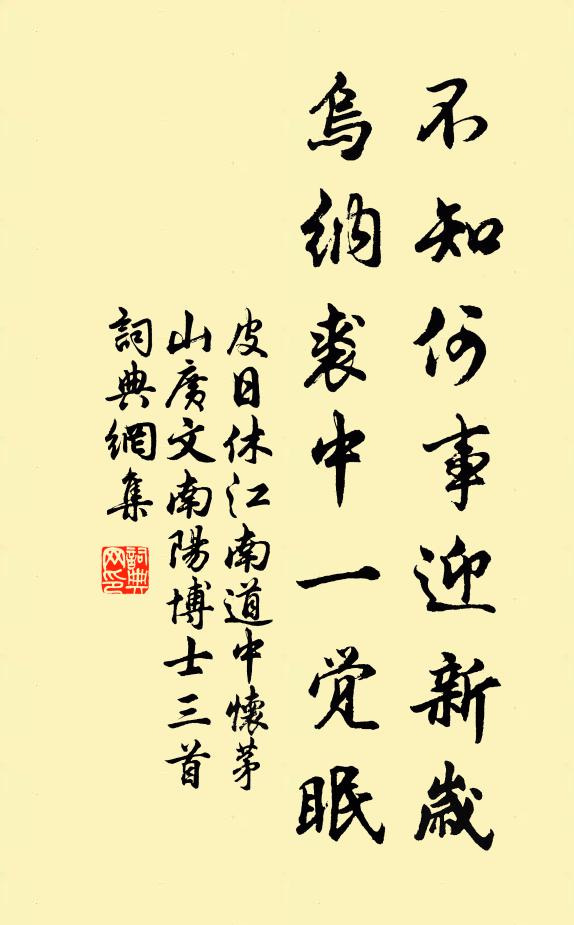 不知何事迎新歲
烏納裘中一覚眠
皮日休江南道中懷茅
山廣文南陽博士三首
詞典網集
詞典
网印